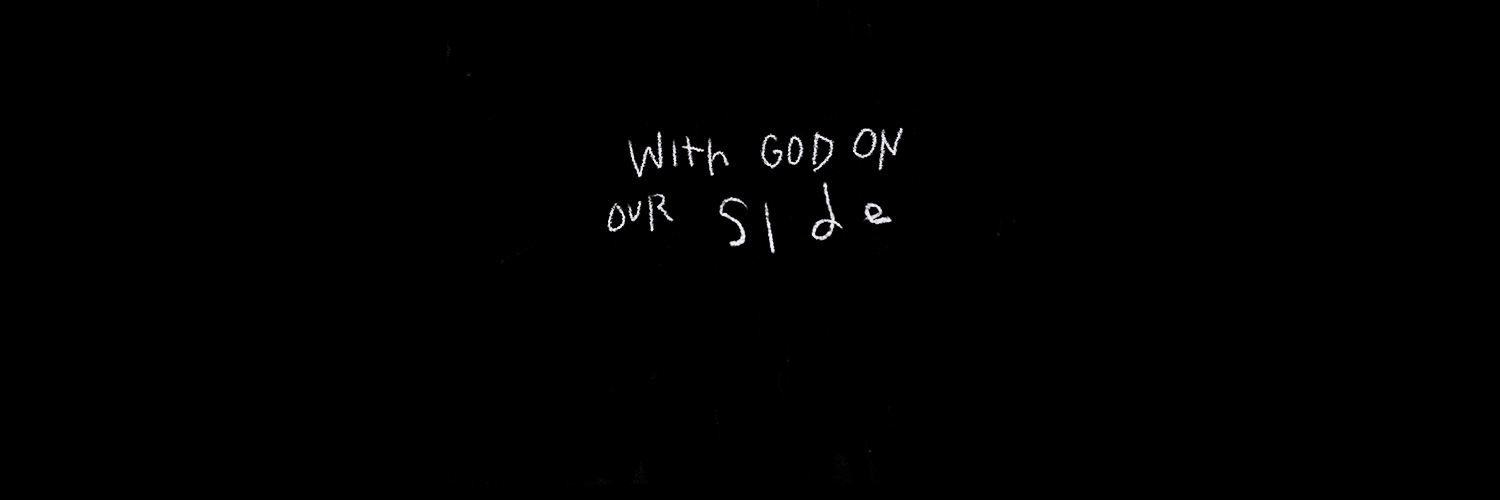 With GOD ON
OUR SIde